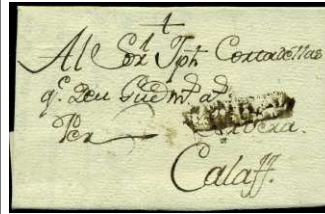 Al Sor Jph Cortadellas
q.e Deu Gue m.s a.s
Per Cervera.
Calaff.